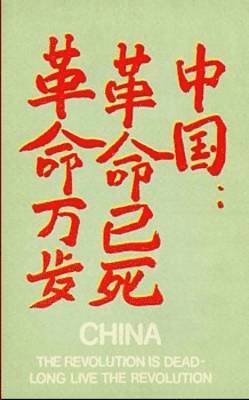 中国：
革命已死
革命万岁
CHINA
THE REVOLUTION IS DEAD-
LONG LIVE THE REVOLUTION